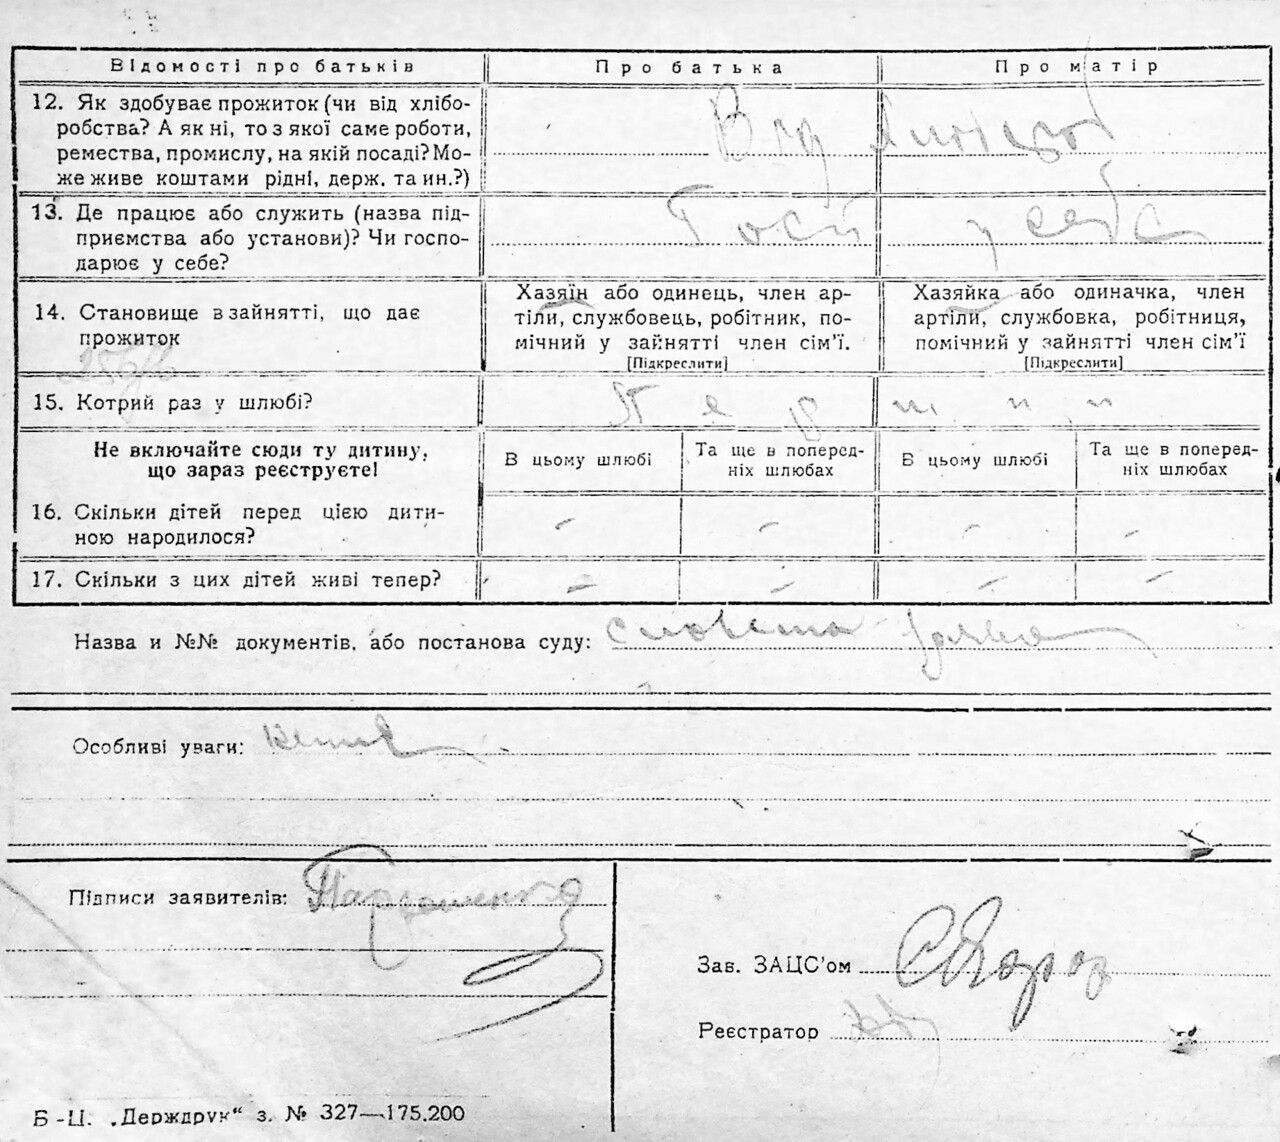 Відомості про батьків Про батька Про матір
12. Як здобуває прожиток (чи від хлібо-
робства? А як ні, то з якої саме роботи,
ремества, промислу, на якій посаді? Мо-
же живе коштами рідні, держ. та ин.?)
Від
13. Де працює або служить (назва під-
приємства або установи)? Чи госпо-
дарює у себе?
Госп у себе
14. Становище в зайнятті, що дає
прожиток
Хазяїн або одинець, член ар-
тіли, службовець, робітник, по-
мічний у зайнятті член сім'ї.
[Підкреслити]
Хазяйка або одиначка, член
артіли, службовка, робітниця,
помічний у зайнятті член сім'ї
[Підкреслити]
15. Котрий раз у шлюбі?
Не включайте сюди ту дитину,
що зараз реєструєте!
В цьому шлюбі
Та ще в поперед-
ніх шлюбах
В цьому шлюбі
Та ще в поперед-
ніх шлюбах
16. Скільки дітей перед цією дити-
ною народилося?
– – – –
17. Скільки з цих дітей живі тепер?
– – – –
Назва и №№ документів, або постанова суду: словесна заява
Особливі уваги: немає
Підписи заявителів:
Зав. ЗАЦС'ом
Реєстратор
Б-Ц. „Держдрук“ з. № 327—175.200